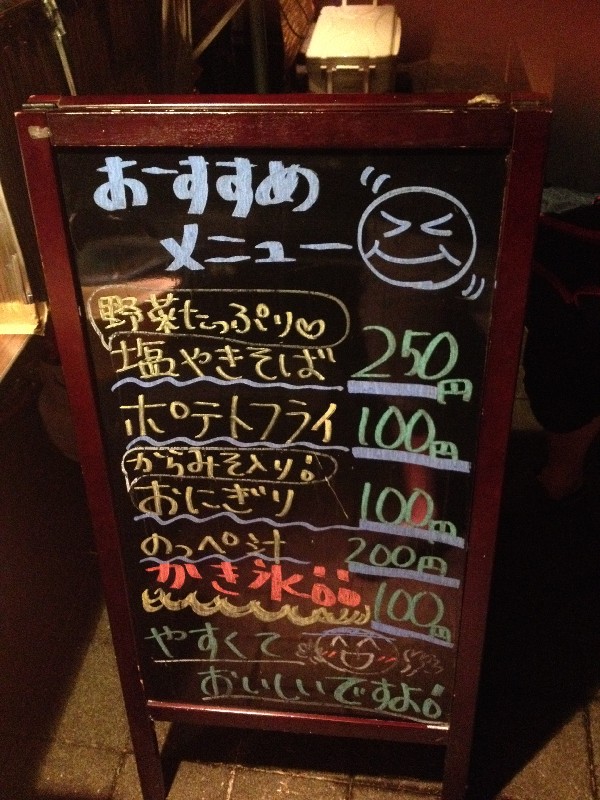 おーすすめ
メニュー
野菜たっぷり♡
塩やきそば 250円
ポテトフライ 100円
からみそ入り!
おにぎり 100円
のっぺ汁 200円
かき氷!! 100円
やすくて
おいしいですよ!